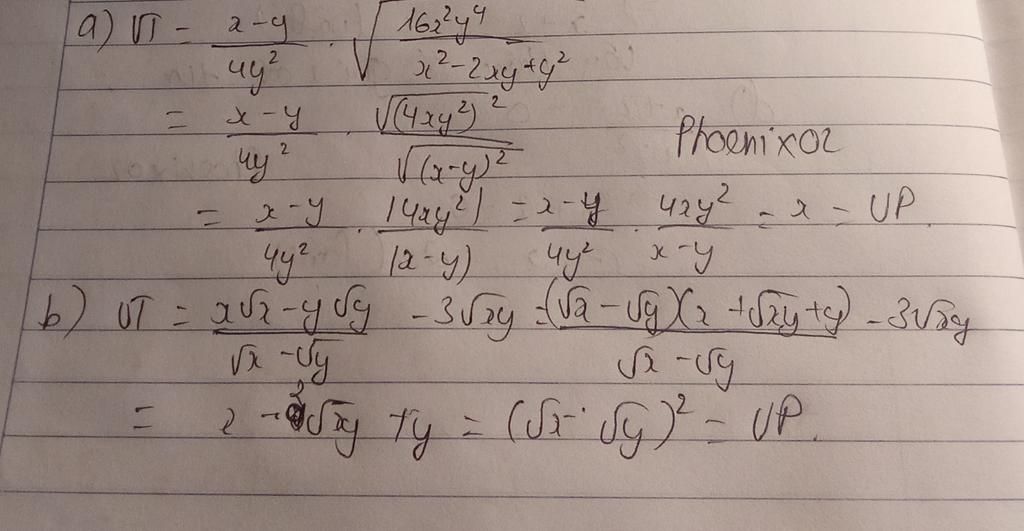 a) VT = \frac{x-y}{4y^2} \cdot \sqrt{\frac{16x^2y^4}{x^2-2xy+y^2}}
= \frac{x-y}{4y^2} \cdot \frac{\sqrt{(4xy^2)^2}}{\sqrt{(x-y)^2}}
Phoenix02
= \frac{x-y}{4y^2} \cdot \frac{|4xy^2|}{|x-y|} = \frac{x-y}{4y^2} \cdot \frac{4xy^2}{x-y} = x = VP.
b) VT = \frac{x\sqrt{x}-y\sqrt{y}}{\sqrt{x}-\sqrt{y}} - 3\sqrt{xy} = \frac{(\sqrt{x}-\sqrt{y})(x+\sqrt{xy}+y)}{\sqrt{x}-\sqrt{y}} - 3\sqrt{xy}
= x - 2\sqrt{xy} + y = (\sqrt{x} - \sqrt{y})^2 = VP.